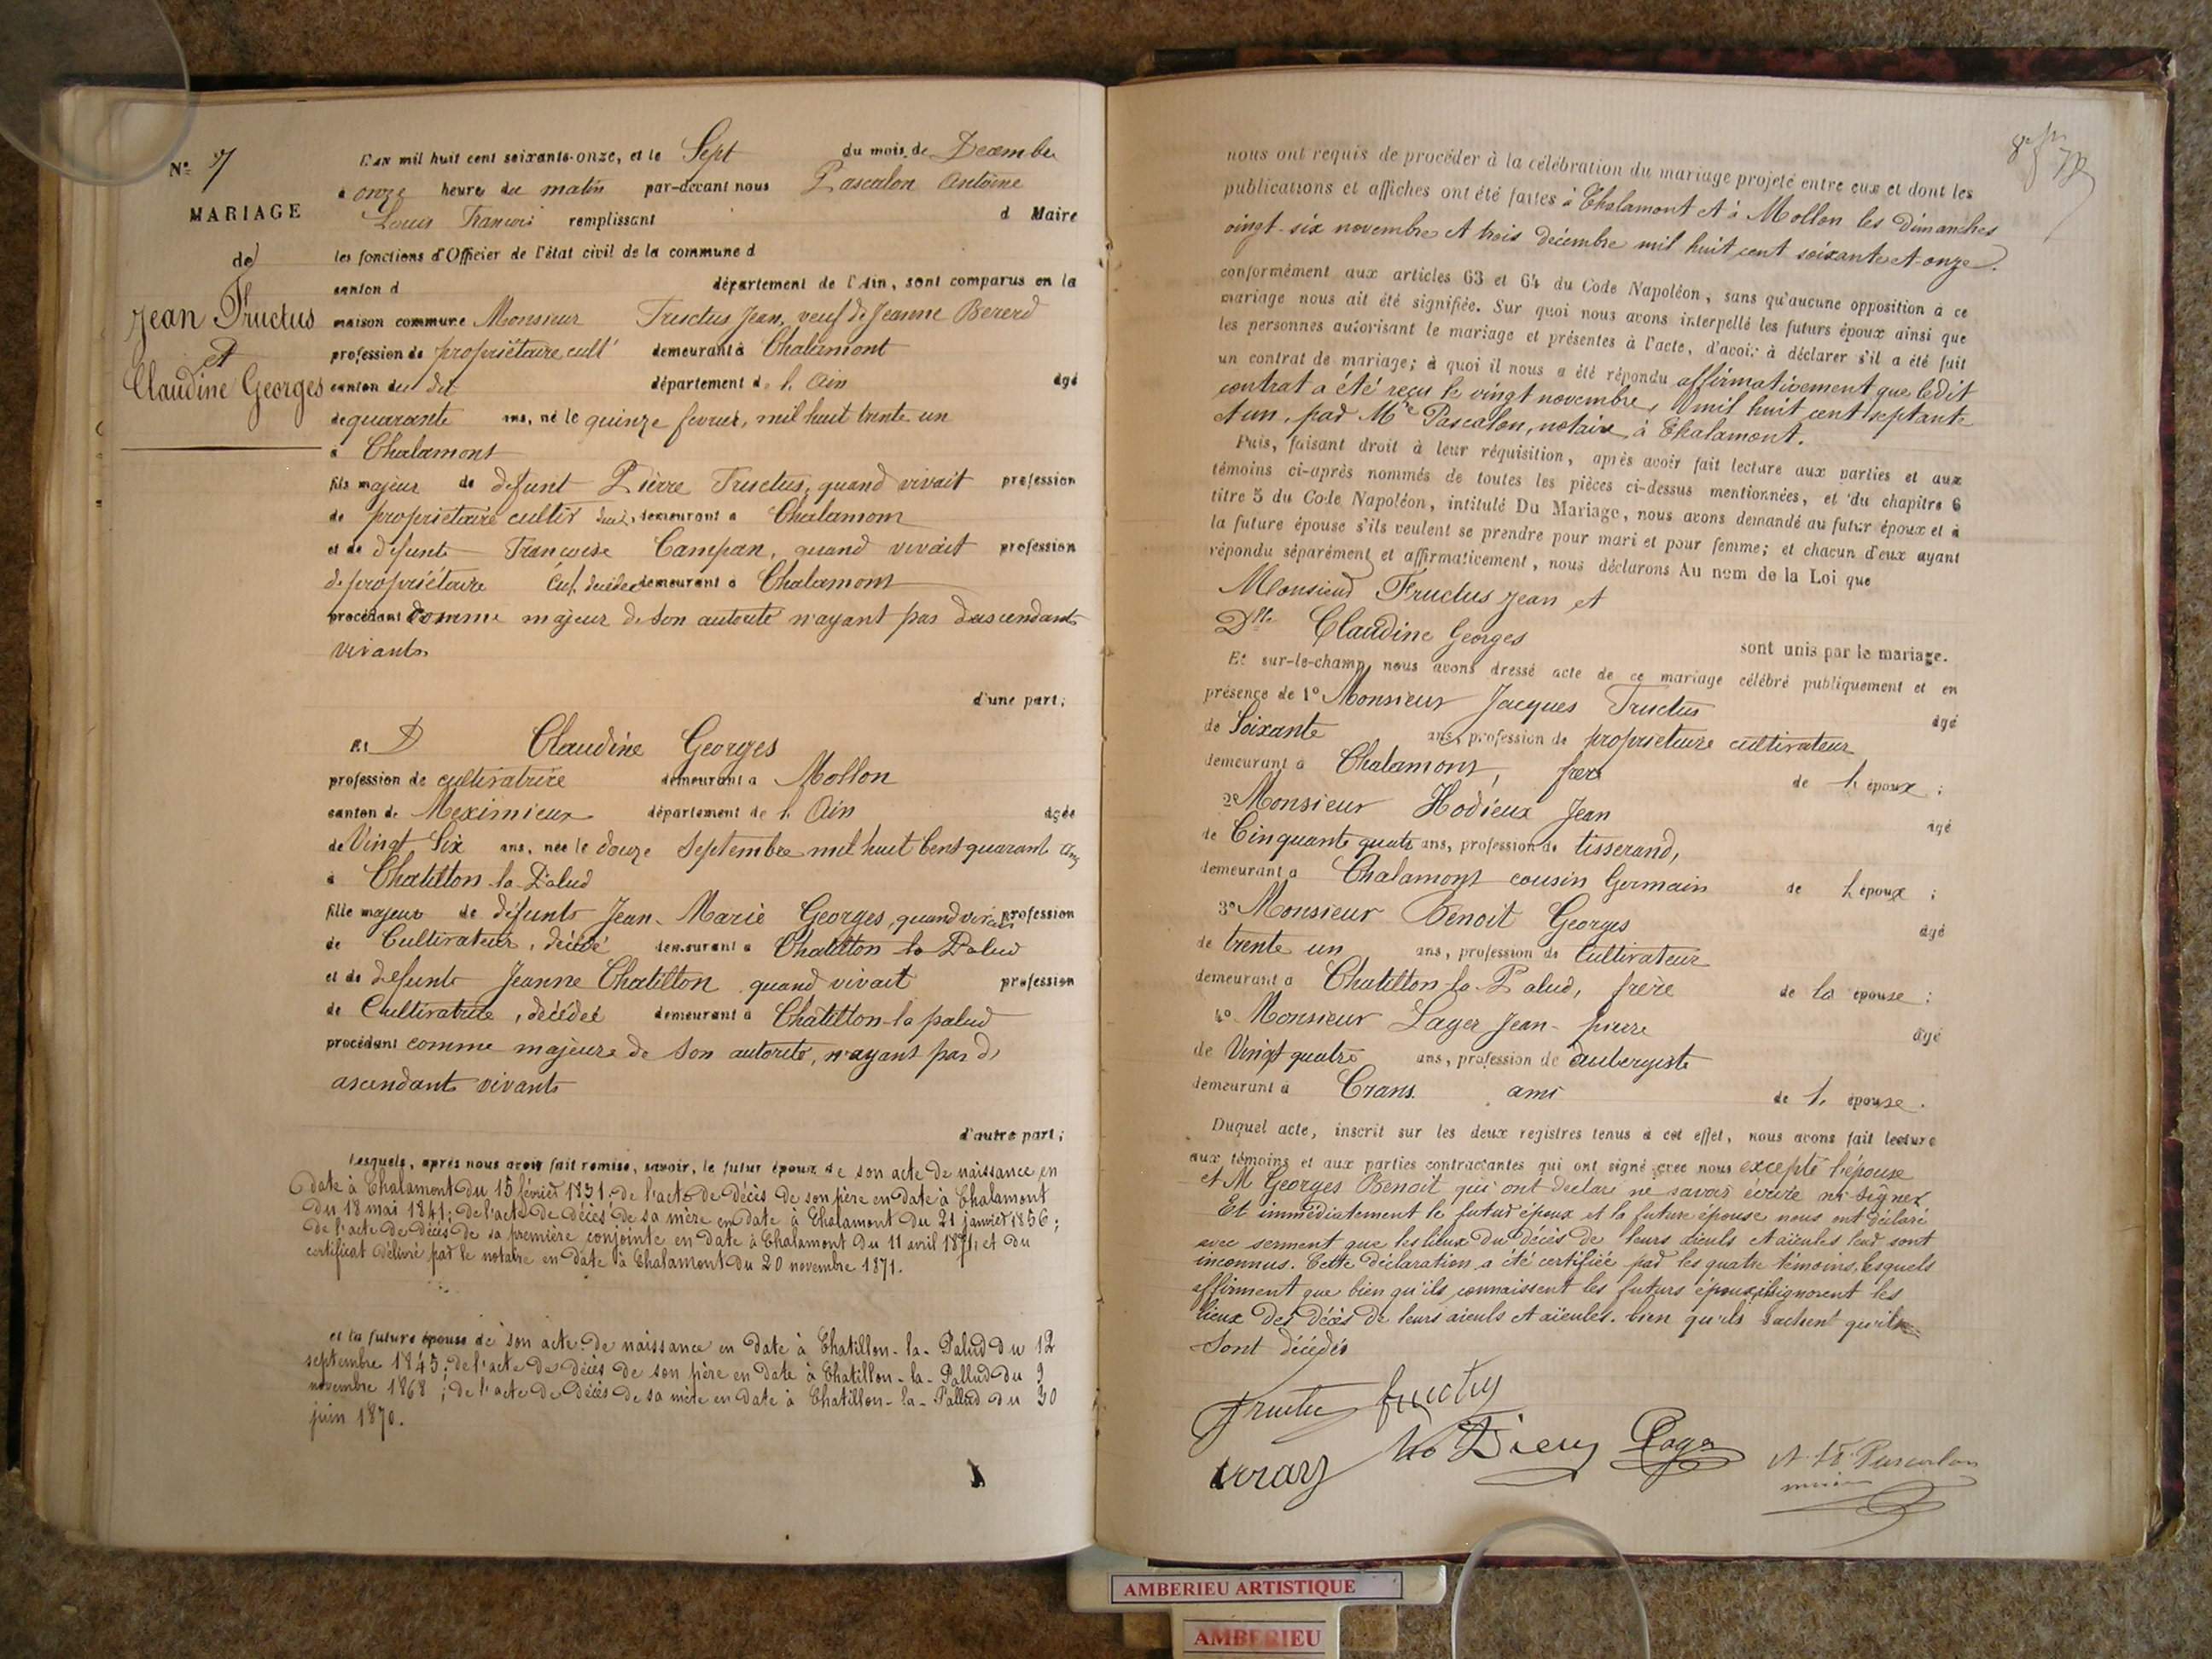 Nº 7
MARIAGE
de
Jean Fructus
et
Claudine Georges
L'an mil huit cent soixante-onze, et le Sept du mois de Decembre
à onze heures du matin par-devant nous Pascalon Antoine
Louis Francois remplissant d Maire
les fonctions d'Officier de l'état civil de la commune d
canton d département de l'Ain, sont comparus en la
maison commune Monsieur Fructus Jean, veuf de Jeanne Bererd
profession de propriétaire cult' demeurant à Chalamont
canton du dit département de l'Ain âgé
de quarante ans, né le quinze fevrier, mil huit trente un
à Chalamont
fils majeur de defunt Pierre Fructus, quand vivait profession
de propriétaire cultiv demeurant à Chalamont
et de defunte Francoise Campan, quand vivait profession
de propriétaire Cult. decidee demeurant à Chalamont
procédant comme majeur de son autorité n'ayant pas dascendants
vivants
d'une part;
Et D Claudine Georges
profession de cultivatrice demeurant à Mollon
canton de Meximieux département de l'Ain âgée
de Vingt Six ans, née le douze Septembre mil huit Cent quarant cinq
à Chatillon-la-Palud
fille majeur de défunt Jean-Marie Georges, quand vivait profession
de Cultivateur, décédé demeurant à Chatillon-la-Palud
et de defunte Jeanne Chatillon quand vivait profession
de Cultivatrice, décédée demeurant à Chatillon-la palud
procédant comme majeure de son autorité, n'ayant pas d'
ascendants vivants
d'autre part;
Lesquels, après nous avoir fait remise, savoir, le futur époux de son acte de naissance en
date à Chalamont du 15 février 1831; de l'acte de décès de son père en date à Chalamont
du 18 mai 1841; de l'acte de décès de sa mère en date à Chalamont du 21 janvier 1856;
de l'acte de décès de sa première conjointe en date à Chalamont du 11 avril 1871; et du
certificat délivré par le notaire en date à Chalamont du 20 novembre 1871.
et la future épouse de son acte de naissance en date à Chatillon-la-Palud du 12
septembre 1845; de l'acte de décès de son père en date à Chatillon-la-Pallud du 9
novembre 1868; de l'acte de décès de sa mère en date à Chatillon-la-Pallud du 30
juin 1870.
nous ont requis de procéder à la célébration du mariage projeté entre eux et dont les
publications et affiches ont été faites à Chalamont et à Mollon les dimanches
vingt-six novembre et trois décembre mil huit cent soixante et onze.
conformément aux articles 63 et 64 du Code Napoléon, sans qu'aucune opposition à ce
mariage nous ait été signifiée. Sur quoi nous avons interpellé les futurs époux ainsi que
les personnes autorisant le mariage et présentes à l'acte, d'avoir à déclarer s'il a été fait
un contrat de mariage; à quoi il nous a été répondu affirmativement que ledit
contrat a été reçu le vingt novembre, mil huit cent septante
et un, par Me Pascalon, notaire à Chalamont.
Puis, faisant droit à leur réquisition, après avoir fait lecture aux parties et aux
témoins ci-après nommés de toutes les pièces ci-dessus mentionnées, et du chapitre 6
titre 5 du Code Napoléon, intitulé Du Mariage, nous avons demandé au futur époux et à
la future épouse s'ils veulent se prendre pour mari et pour femme; et chacun d'eux ayant
répondu séparément et affirmativement, nous déclarons Au nom de la Loi que
Monsieur Fructus Jean et
Dlle Claudine Georges
sont unis par le mariage.
Et sur-le-champ nous avons dressé acte de ce mariage célébré publiquement et en
présence de 1º Monsieur Jacques Fructus âgé
de Soixante ans, profession de propriétaire cultivateur
demeurant à Chalamont, frère de l'époux;
2º Monsieur Hodieux Jean âgé
de Cinquante quatre ans, profession de tisserand,
demeurant à Chalamont cousin Germain de l'époux;
3º Monsieur Benoit Georges âgé
de trente un ans, profession de Cultivateur
demeurant à Chatillon-la-Palud, frère de la épouse;
4º Monsieur Lager Jean-pierre âgé
de Vingt quatre ans, profession de aubergiste
demeurant à Crans. ami de l'épouse.
Duquel acte, inscrit sur les deux registres tenus à cet effet, nous avons fait lecture
aux témoins et aux parties contractantes qui ont signé avec nous excepté l'épouse
et M Georges Benoit qui ont declaré ne savoir écrire ni signer
Et immédiatement le futur époux et la future épouse nous ont déclaré
avec serment que les lieux du décès de leurs aïeuls et aïeules leur sont
inconnus. Cette déclaration a été certifiée par les quatre témoins, lesquels
affirment que bien qu'ils connaissent les futurs époux, ils ignorent les
lieux des décès de leurs aïeuls et aïeules. bien qu'ils sachent qu'ils
Sont décédés
Fructus fructus
ho Dieux
A. F. Pascalon
maire
AMBERIEU ARTISTIQUE
AMBERIEU